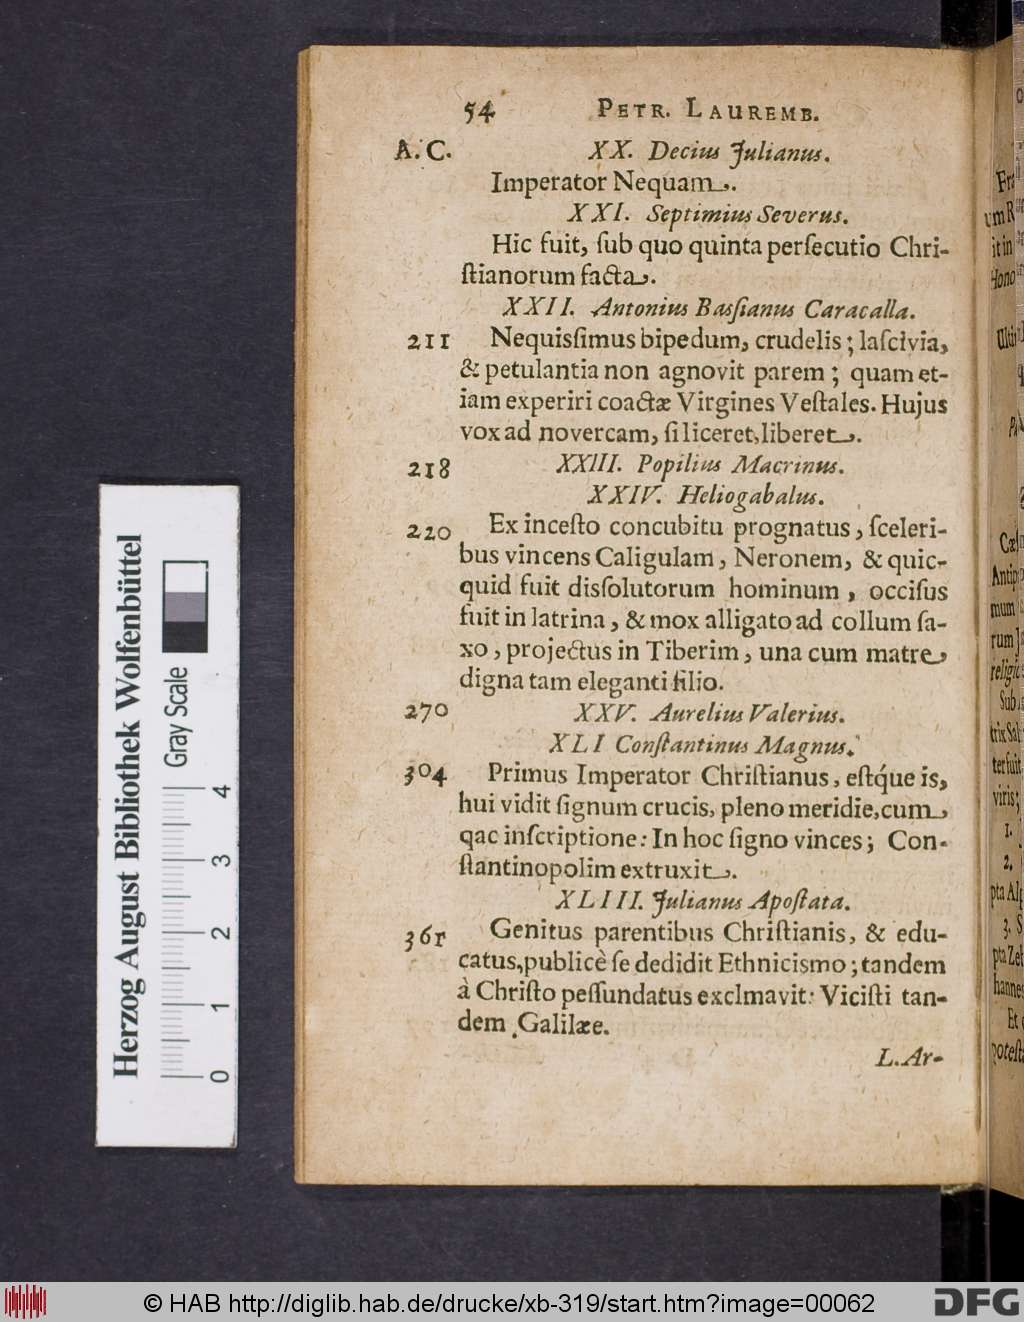 54 PETR. LAUREMB.
A. C. XX. Decius Julianus.
Imperator Nequam.
XXI. Septimius Severus.
Hic fuit, ſub quo quinta perſecutio Chri-
ſtianorum facta.
XXII. Antonius Baſsianus Caracalla.
211 Nequisſimus bipedum, crudelis; laſcivia,
& petulantia non agnovit parem; quam et-
iam experiri coactæ Virgines Veſtales. Hujus
vox ad novercam, ſi liceret, liberet.
218 XXIII. Popilius Macrinus.
XXIV. Heliogabalus.
220 Ex inceſto concubitu prognatus, ſceleri-
bus vincens Caligulam, Neronem, & quic-
quid fuit disſolutorum hominum, occiſus
fuit in latrina, & mox alligato ad collum ſa-
xo, projectus in Tiberim, una cum matre,
digna tam eleganti filio.
270 XXV. Aurelius Valerius.
XLI Conſtantinus Magnus.
304 Primus Imperator Chriſtianus, eſtq́ue is,
hui vidit ſignum crucis, pleno meridie, cum,
qac inſcriptione: In hoc ſigno vinces; Con-
ſtantinopolim extruxit.
XLIII. Julianus Apoſtata.
361 Genitus parentibus Chriſtianis, & edu-
catus, publicè ſe dedidit Ethniciſmo; tandem
à Chriſto peſſundatus exclmavit: Viciſti tan-
dem Galilæe.
L. Ar-
Herzog August Bibliothek Wolfenbüttel
Gray Scale
0 1 2 3 4
© HAB http://diglib.hab.de/drucke/xb-319/start.htm?image=00062
DFG